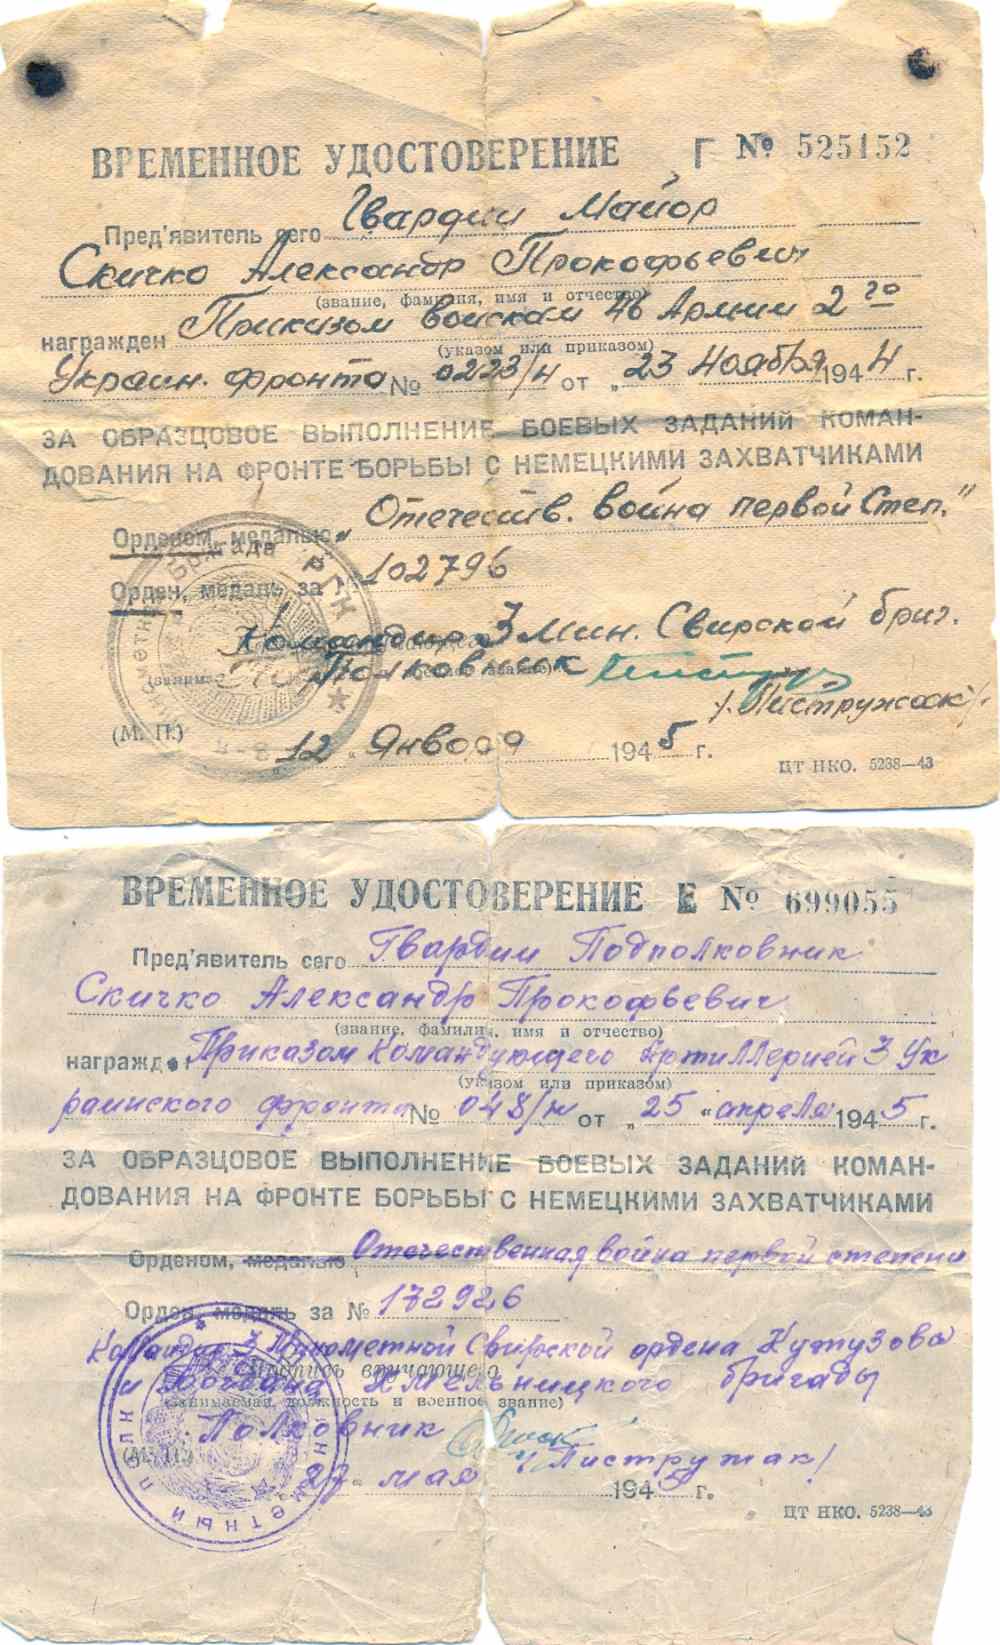 ВРЕМЕННОЕ УДОСТОВЕРЕНИЕ Г № 525152
Пред'явитель сего Гвардии Майор
Скичко Александр Прокофьевич
(звание, фамилия, имя и отчество)
награжден Приказом Войскам 46 Армии 2го
(указом или приказом)
Украин. фронта № 0223/н от „23 Ноября 1944 г.
ЗА ОБРАЗЦОВОЕ ВЫПОЛНЕНИЕ БОЕВЫХ ЗАДАНИЙ КОМАН-
ДОВАНИЯ НА ФРОНТЕ БОРЬБЫ С НЕМЕЦКИМИ ЗАХВАТЧИКАМИ
Орденом, медалью „Отечеств. война первой Степ."
Орден, медаль за 102796
Командир 3 Мин. Свирской бриг.
Полковник
/Пистружак/
(М. П.)
„12 Января 1945 г.
ЦТ НКО. 5238—43
ВРЕМЕННОЕ УДОСТОВЕРЕНИЕ Е № 699055
Пред'явитель сего Гвардии Подполковник
Скичко Александр Прокофьевич
(звание, фамилия, имя и отчество)
награжд Приказом Командующего Артиллерией 3 Ук
(указом или приказом)
раинского фронта № 048/н от „25 "апреля 1945 г.
ЗА ОБРАЗЦОВОЕ ВЫПОЛНЕНИЕ БОЕВЫХ ЗАДАНИЙ КОМАН-
ДОВАНИЯ НА ФРОНТЕ БОРЬБЫ С НЕМЕЦКИМИ ЗАХВАТЧИКАМИ
Орденом, медалью Отечественная война первой степени
Орден, медаль за № 172926
Командир 3 Минометной Свирской ордена Кутузова
Подпись вручающего
и Богдана Хмельницкого бригады
(занимаемая должность и военное звание)
Полковник
(М. П.) /Пистружак/
27 " мая 1945 г.
ЦТ НКО. 5238—43